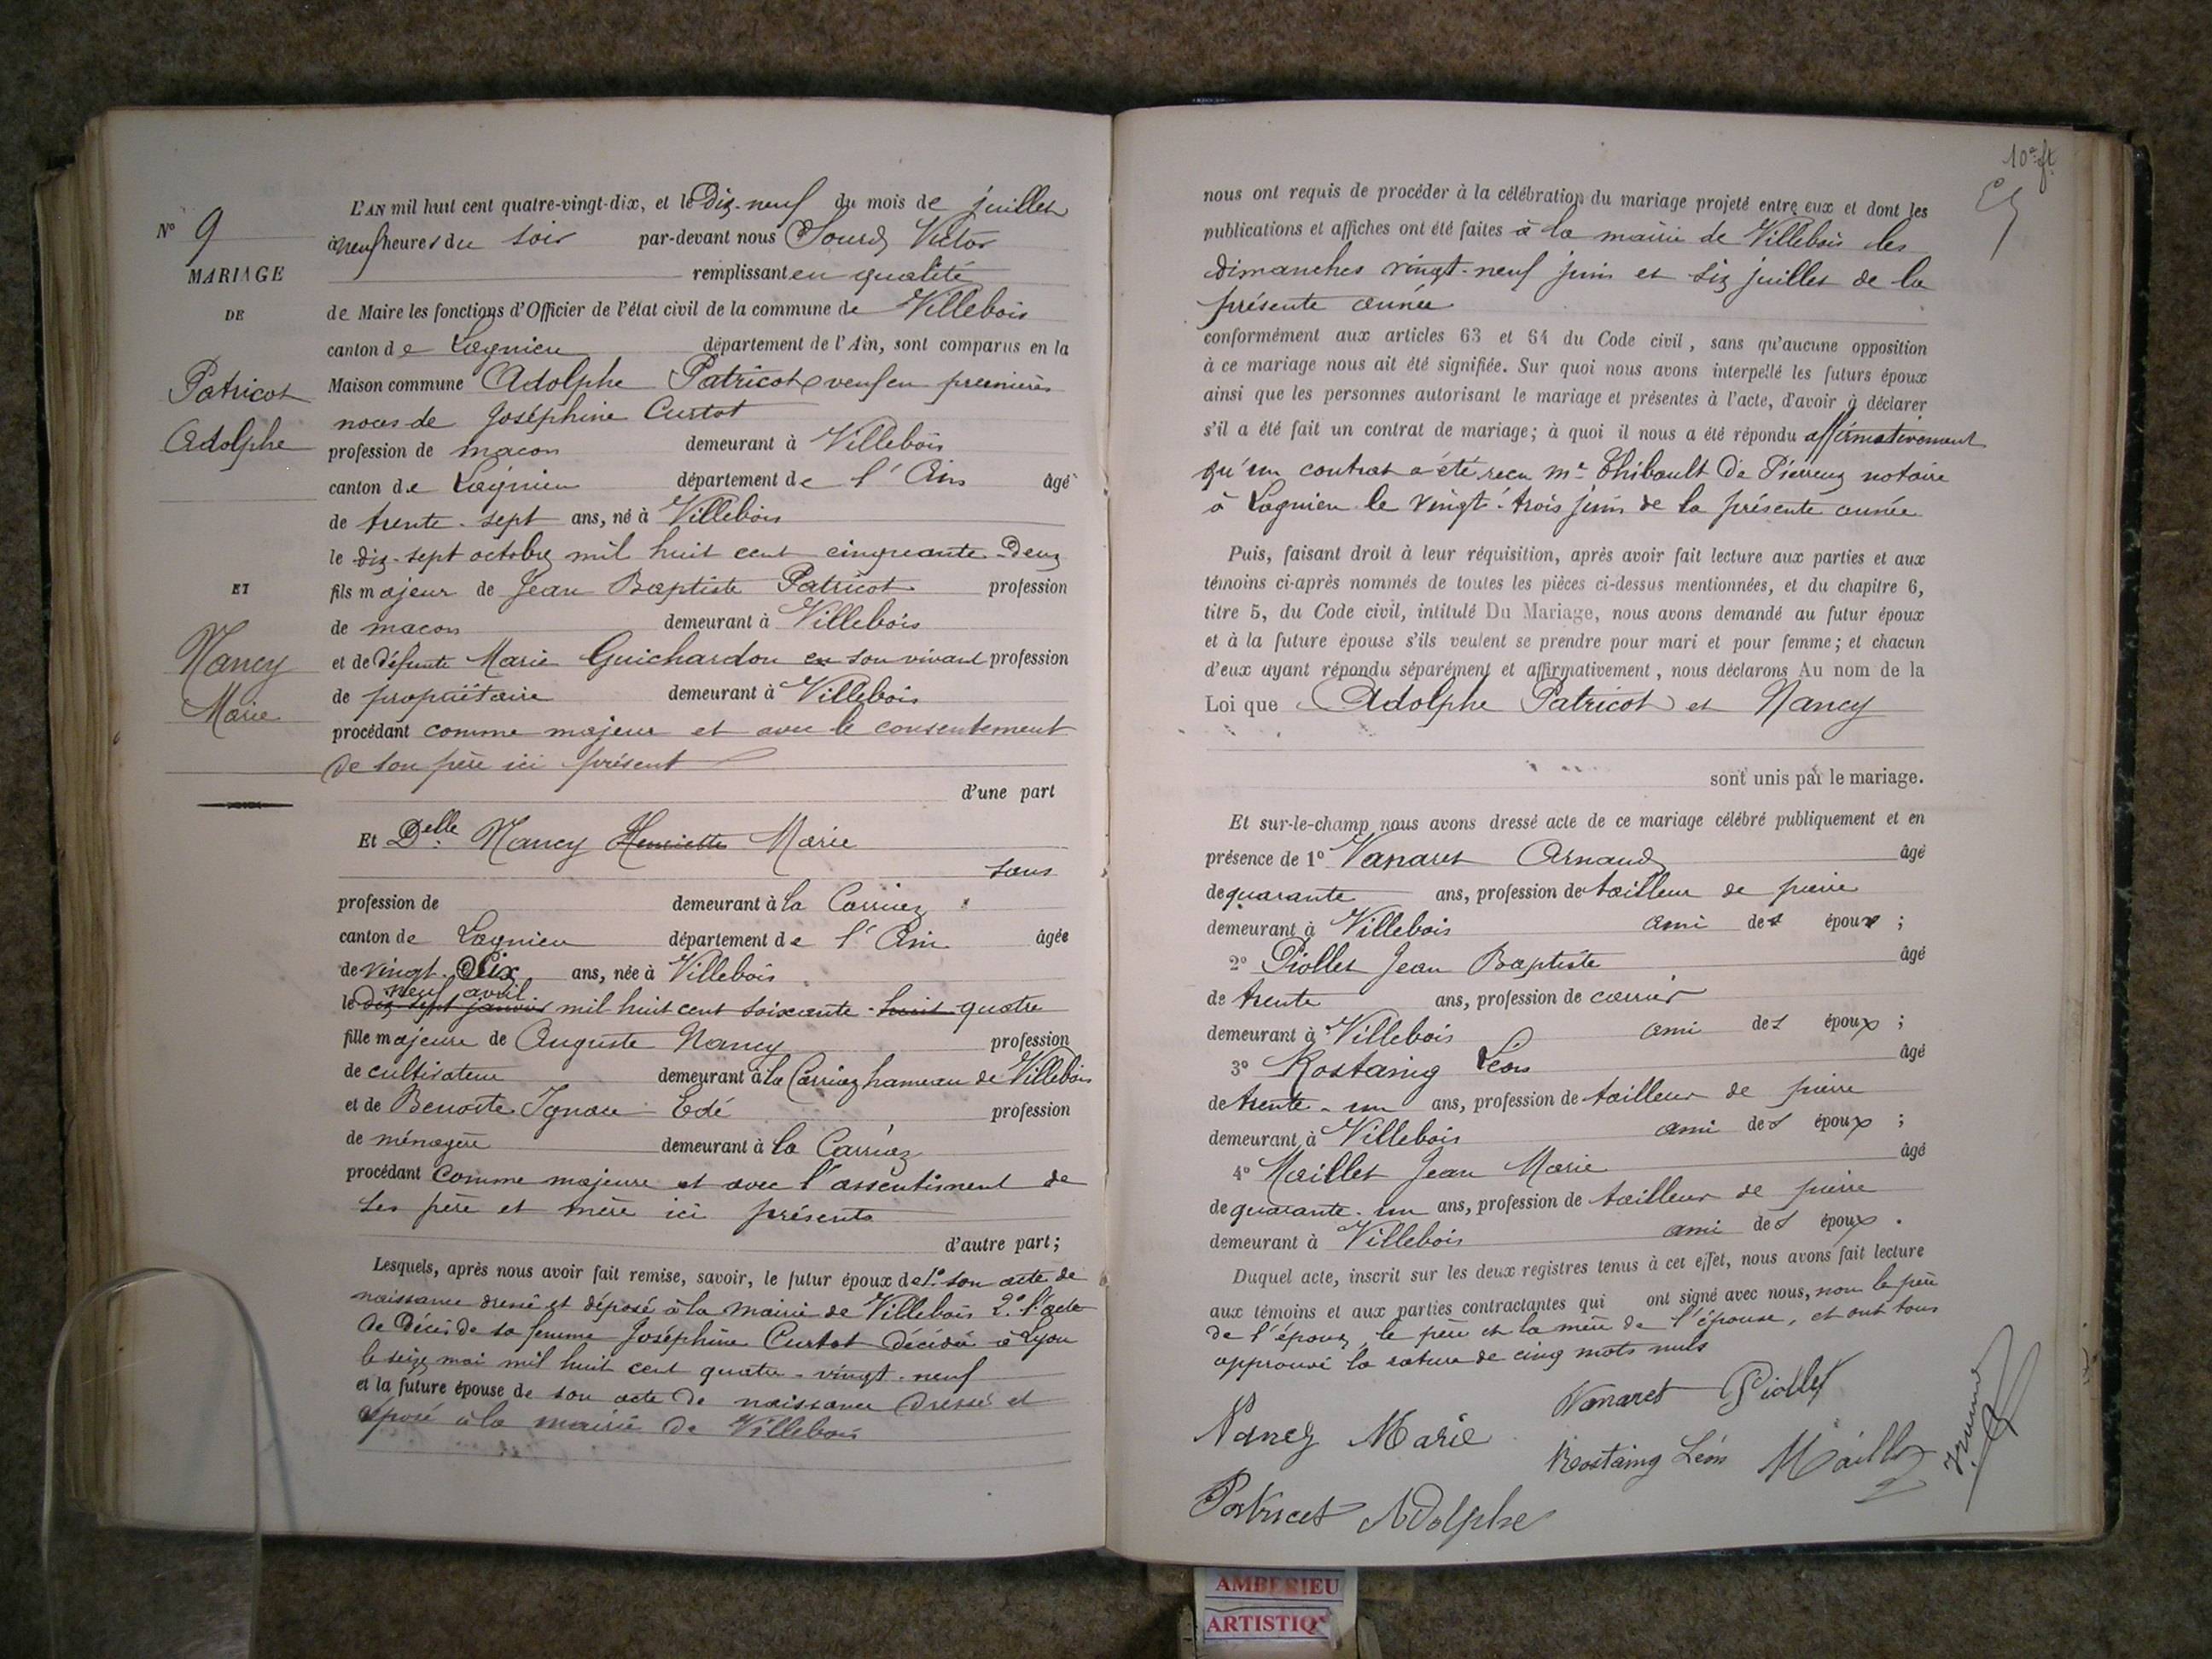 L'AN mil huit cent quatre-vingt-dix, et le Dix-neuf du mois de juillet
à neuf heures du soir par-devant nous Sourd Victor
remplissant en qualité
de Maire les fonctions d'Officier de l'état civil de la commune de Villebois
canton de Lagnieu département de l'Ain, sont comparus en la
Maison commune Adolphe Patricot veuf en premières
noces de Joséphine Curtot
profession de maçon demeurant à Villebois
canton de Lagnieu département de l'Ain âgé
de trente-sept ans, né à Villebois
le dix-sept octobre mil huit cent cinquante-Deux
fils majeur de Jean Baptiste Patricot profession
de macon demeurant à Villebois
et de Défunte Marie Guichardon en son vivant profession
de propriétaire demeurant à Villebois
procédant comme majeur et avec le consentement
de son père ici présent
d'une part
Et Delle Nancy Henriette Marie
sans
profession de demeurant à la Carriaz
canton de Lagnieu département de l'Ain âgée
de vingt-Six ans, née à Villebois
neuf avril
le dix-sept janvier mil huit cent soixante-huit quatre
fille majeure de Auguste Nancy profession
de cultivateur demeurant à la Carriaz hameau de Villebois
et de Benoite Ignace Edé profession
de ménagère demeurant à la Carriaz
procédant comme majeure et avec l'assentiment de
ses père et mère ici présents
d'autre part;
Lesquels, après nous avoir fait remise, savoir, le futur époux de 1° son acte de
naissance dressé et déposé à la mairie de Villebois 2° l'acte
de Décès de sa femme Joséphine Curtot décédée à Lyon
le seize mai mil huit cent quatre-vingt-neuf
et la future épouse de son acte de naissance dressé et
déposé à la mairie de Villebois
N° 9
MARIAGE
DE
Patricot
Adolphe
ET
Nancy
Marie
10e ft
nous ont requis de procéder à la célébration du mariage projeté entre eux et dont les
publications et affiches ont été faites à la mairie de Villebois les
dimanches vingt-neuf juin et six juillet de la
présente année
conformément aux articles 63 et 64 du Code civil, sans qu'aucune opposition
à ce mariage nous ait été signifiée. Sur quoi nous avons interpellé les futurs époux
ainsi que les personnes autorisant le mariage et présentes à l'acte, d'avoir à déclarer
s'il a été fait un contrat de mariage; à quoi il nous a été répondu affirmativement
qu'un contrat a été reçu Me Thibault De Pierreux notaire
à Lagnieu le vingt-trois juin de la présente année
Puis, faisant droit à leur réquisition, après avoir fait lecture aux parties et aux
témoins ci-après nommés de toutes les pièces ci-dessus mentionnées, et du chapitre 6,
titre 5, du Code civil, intitulé Du Mariage, nous avons demandé au futur époux
et à la future épouse s'ils veulent se prendre pour mari et pour femme; et chacun
d'eux ayant répondu séparément et affirmativement, nous déclarons Au nom de la
Loi que Adolphe Patricot et Nancy
sont unis par le mariage.
Et sur-le-champ nous avons dressé acte de ce mariage célébré publiquement et en
présence de 1° Vanaret Arnaud âgé
de quarante ans, profession de tailleur de pierre
demeurant à Villebois ami des époux;
2° Piollet Jean Baptiste âgé
de trente ans, profession de carrier
demeurant à Villebois ami des époux;
3° Rostaing Léon âgé
de trente-un ans, profession de tailleur de pierre
demeurant à Villebois ami des époux;
4° Maillet Jean Marie âgé
de quarante-un ans, profession de tailleur de pierre
demeurant à Villebois ami des époux.
Duquel acte, inscrit sur les deux registres tenus à cet effet, nous avons fait lecture
aux témoins et aux parties contractantes qui ont signé avec nous, non le père
de l'époux, le père et la mère de l'épouse, et ont tous
approuvé la rature de cinq mots nuls
Vanaret Piollet
Nancy Marie
Rostaing Léon Maillet
Patricot Adolphe
AMBERIEU
ARTISTIQ